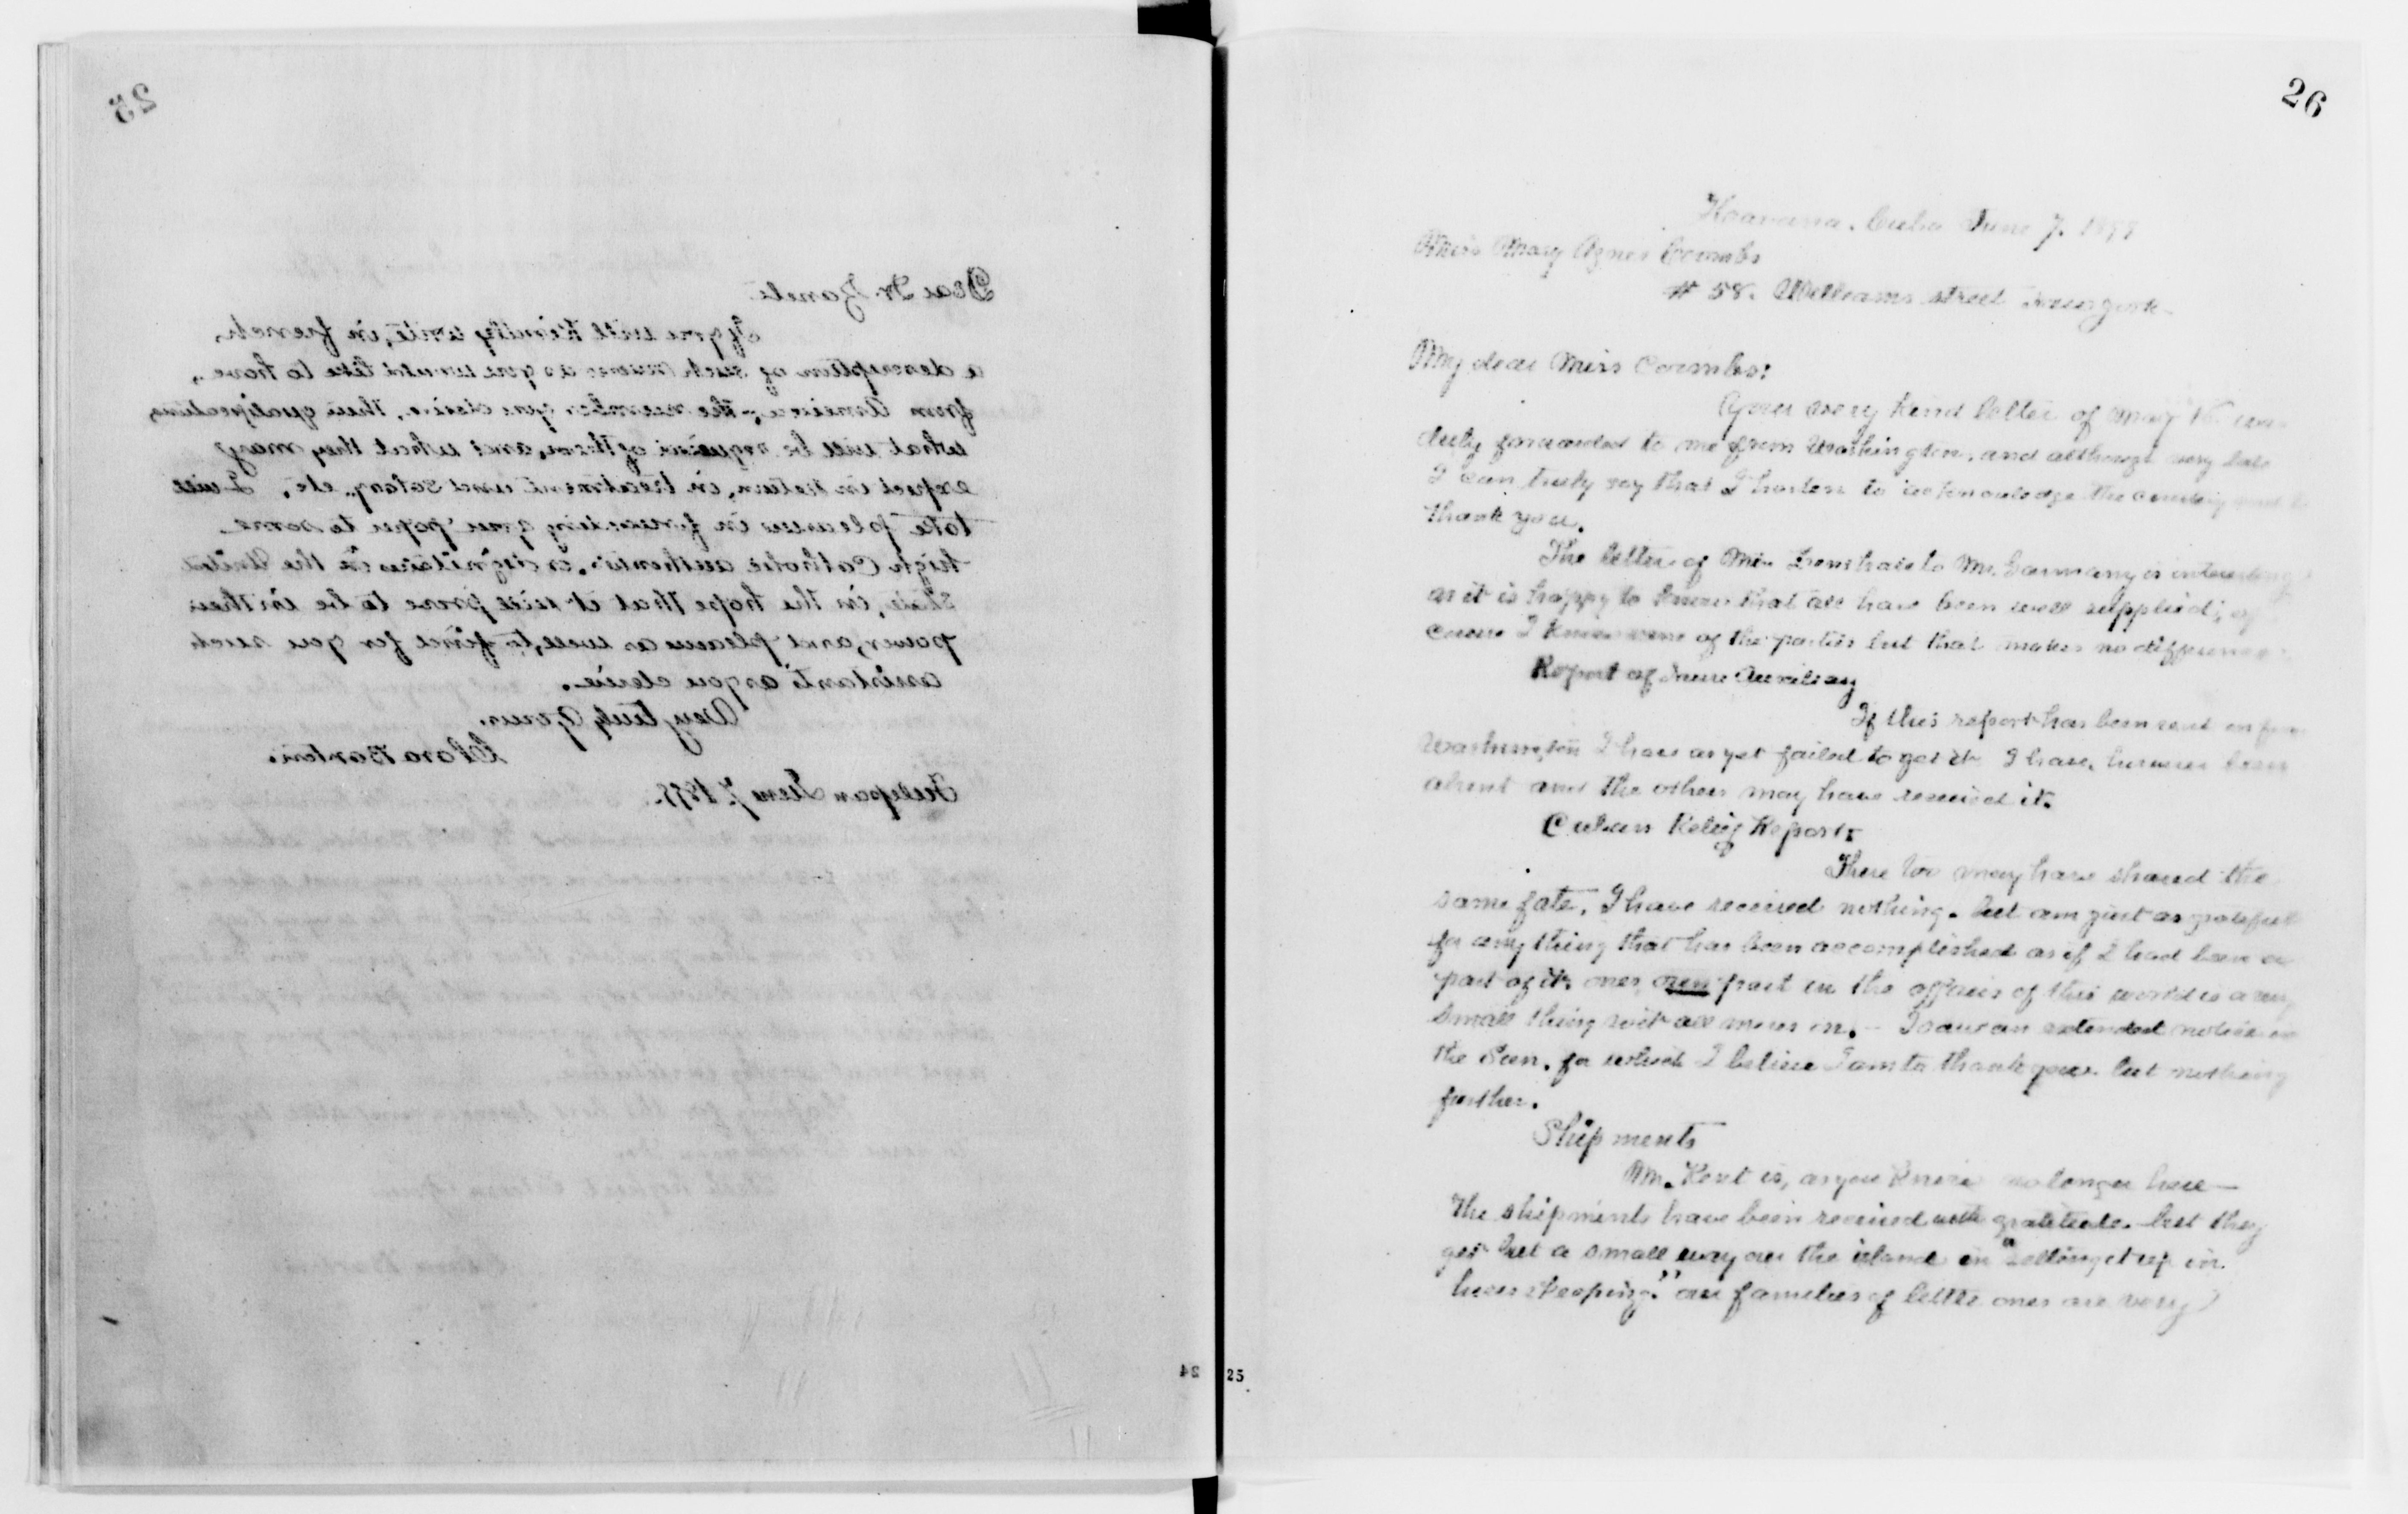 25
Dear Dr. Zaneti
If you will kindly write, in french,
a description of such nuns as you would like to have,
from America; the number you desire, their qualifications,
what will be required of them, and what they may
expect in return, in treatment and salary, etc. I will
take pleasure in forwarding your paper to some
high Catholic authorities, or dignitaries in the United
States, in the hope that it will prove to be in their
power, and pleasure as well, to find for you such
assistants as you desire.
Very truly yours.
Clara Barton.
June 7. 1899.
24
26
Havana. Cuba June 7. 1899
Miss Mary Agnes Coombs
# 58. William street New york
My dear Miss Coombs:
Your very kind letter of May was
duly forwarded to me from Washington, and although very late
I can truly say that I hasten to acknowledge the courtesy and to
thank you.
The letter of Mr. to Mr. is interesting
as it is happy to know that all have been well supplied; of
course I knew none of the parties but that makes no difference.
Report of Auxiliary
If this report has been sent on from
Washington I have as yet failed to get it. I have, however been
absent and the others may have received it.
Cuban Relief Reports
These too may have shared the
same fate. I have received nothing. but am just as grateful
for any thing that has been accomplished as if I had been a
part of it. ones own part in the affairs of this world is a very
small thing with all mens in. - I saw an extended notice in
the Sun. for which I believe I am to thank you. but nothing
further.
Shipments
Mr. Kent is, as you know no longer here —
The shipments have been received with gratitude. but they
go but a small way on the island in "setting it up in
housekeeping." our families of little ones are very
25